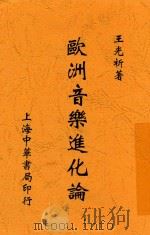 王光祈著
歐洲音樂進化論
上海中華書局印行